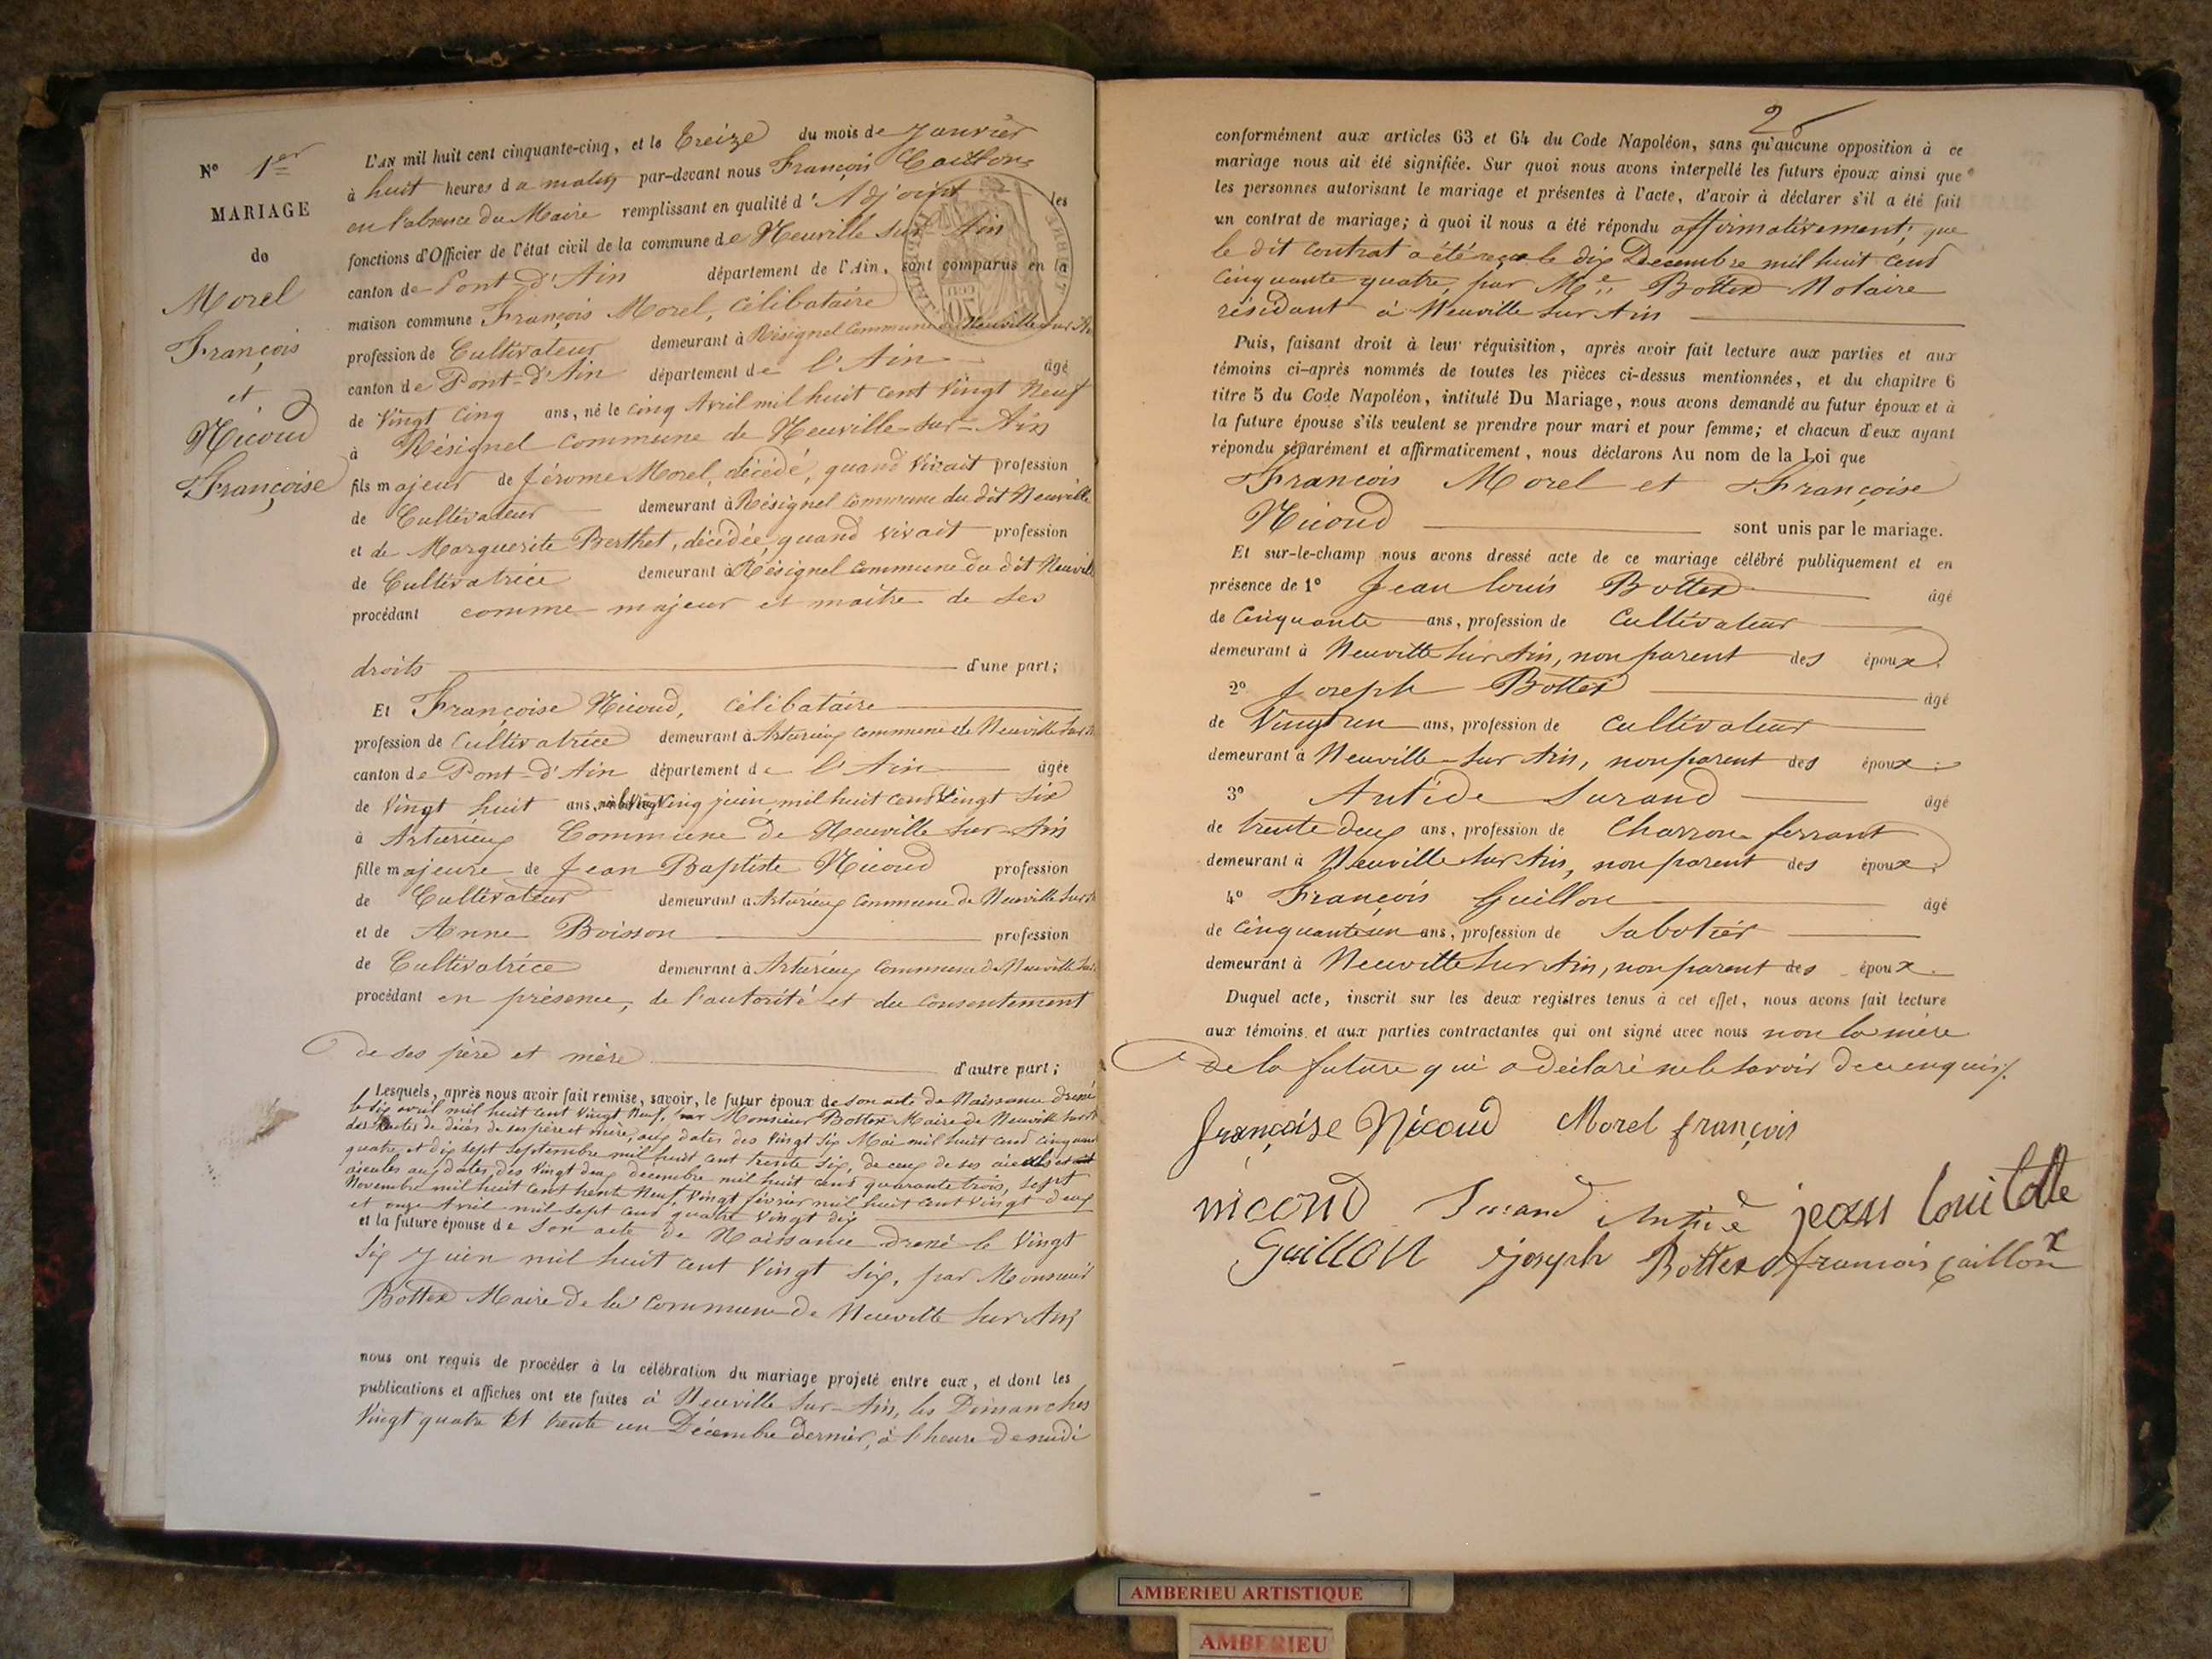 N° 1er
MARIAGE
de
Morel
François
et
Nicoud
Françoise
L'AN mil huit cent cinquante-cinq, et le Treize du mois de Janvier
à huit heures du matin par-devant nous François Caillon
en l'absence du Maire remplissant en qualité d'Adjoint les
fonctions d'Officier de l'état civil de la commune de Neuville sur Ain
canton de Pont-d'Ain département de l'Ain, sont comparus en la
maison commune François Morel, célibataire
profession de Cultivateur demeurant à Résignel Commune de Neuville sur Ain
canton de Pont-d'Ain département de l'Ain âgé
de Vingt Cinq ans, né le cinq Avril mil huit cent Vingt Neuf
à Résignel Commune de Neuville-sur-Ain
fils majeur de Jérome Morel, décédé, quand vivait profession
de Cultivateur demeurant à Résignel Commune du dit Neuville
et de Marguerite Berthet, décédée, quand vivait profession
de Cultivatrice demeurant à Résignel Commune du dit Neuville
procédant comme majeur et maître de ses
droits d'une part;
Et Françoise Nicoud, Célibataire
profession de Cultivatrice demeurant à Arturieux commune de Neuville sur Ain
canton de Pont-d'Ain département de l'Ain âgée
de Vingt huit ans, juin mil huit cent Vingt Six
à Arturieux Commune de Neuville sur-Ain
fille majeure de Jean Baptiste Nicoud profession
de Cultivateur demeurant à Arturieux Commune de Neuville sur
et de Anne Boisson profession
de Cultivatrice demeurant à Arturieux Commune de Neuville sur
procédant en présence, de l'autorité et du consentement
de ses père et mère d'autre part;
Lesquels, après nous avoir fait remise, savoir, le futur époux de son acte de Naissance dressé
le six avril mil huit cent Vingt Neuf, par Monsieur Bottex Maire de Neuville sur
des actes de décès de ses père et mère, aux dates des Vingt six Mai mil huit cent cinquante
quatre et dix sept septembre mil huit cent trente six, de ceux de ses aïeuls et
aïeules aux dates, des Vingt deux décembre mil huit cent quarante trois, sept
Novembre mil huit cent trente Neuf, Vingt février mil huit cent Vingt deux
et onze Avril mil sept cent quatre Vingt dix
et la future épouse de son acte de Naissance dressé le Vingt
six Juin mil huit cent Vingt Six, par Monsieur
Bottex Maire de la Commune de Neuville sur Ain
nous ont requis de procéder à la célébration du mariage projeté entre eux, et dont les
publications et affiches ont été faites à Neuville sur-Ain, les Dimanches
Vingt quatre et trente un Décembre dernier, à l'heure de midi
2
conformément aux articles 63 et 64 du Code Napoléon, sans qu'aucune opposition à ce
mariage nous ait été signifiée. Sur quoi nous avons interpellé les futurs époux ainsi que
les personnes autorisant le mariage et présentes à l'acte, d'avoir à déclarer s'il a été fait
un contrat de mariage; à quoi il nous a été répondu affirmativement, que
le dit contrat a été reçu le dix Décembre mil huit cent
Cinquante quatre, par Me Bottex Notaire
résidant à Neuville sur Ain
Puis, faisant droit à leur réquisition, après avoir fait lecture aux parties et aux
témoins ci-après nommés de toutes les pièces ci-dessus mentionnées, et du chapitre 6
titre 5 du Code Napoléon, intitulé Du Mariage, nous avons demandé au futur époux et à
la future épouse s'ils veulent se prendre pour mari et pour femme; et chacun d'eux ayant
répondu séparément et affirmativement, nous déclarons Au nom de la Loi que
François Morel et Françoise
Nicoud sont unis par le mariage.
Et sur-le-champ nous avons dressé acte de ce mariage célébré publiquement et en
présence de 1° Jean Louis Bottex âgé
de Cinquante ans, profession de Cultivateur
demeurant à Neuville sur Ain, non parent des époux.
2° Joseph Bottex âgé
de Vingt un ans, profession de Cultivateur
demeurant à Neuville-sur Ain, non parent des époux.
3° Antide Surand âgé
de trente deux ans, profession de Charron ferrant
demeurant à Neuville sur Ain, non parent des époux.
4° François Guillon âgé
de Cinquante un ans, profession de Sabotier
demeurant à Neuville sur Ain, non parent des époux.
Duquel acte, inscrit sur les deux registres tenus à cet effet, nous avons fait lecture
aux témoins et aux parties contractantes qui ont signé avec nous non la mère
de la future qui a déclaré ne le savoir de ce enquis.
françoise Nicoud Morel françois
nicoud Surand Antide jean loui
Guillon joseph Bottex francois caillon
AMBERIEU ARTISTIQUE
AMBERIEU